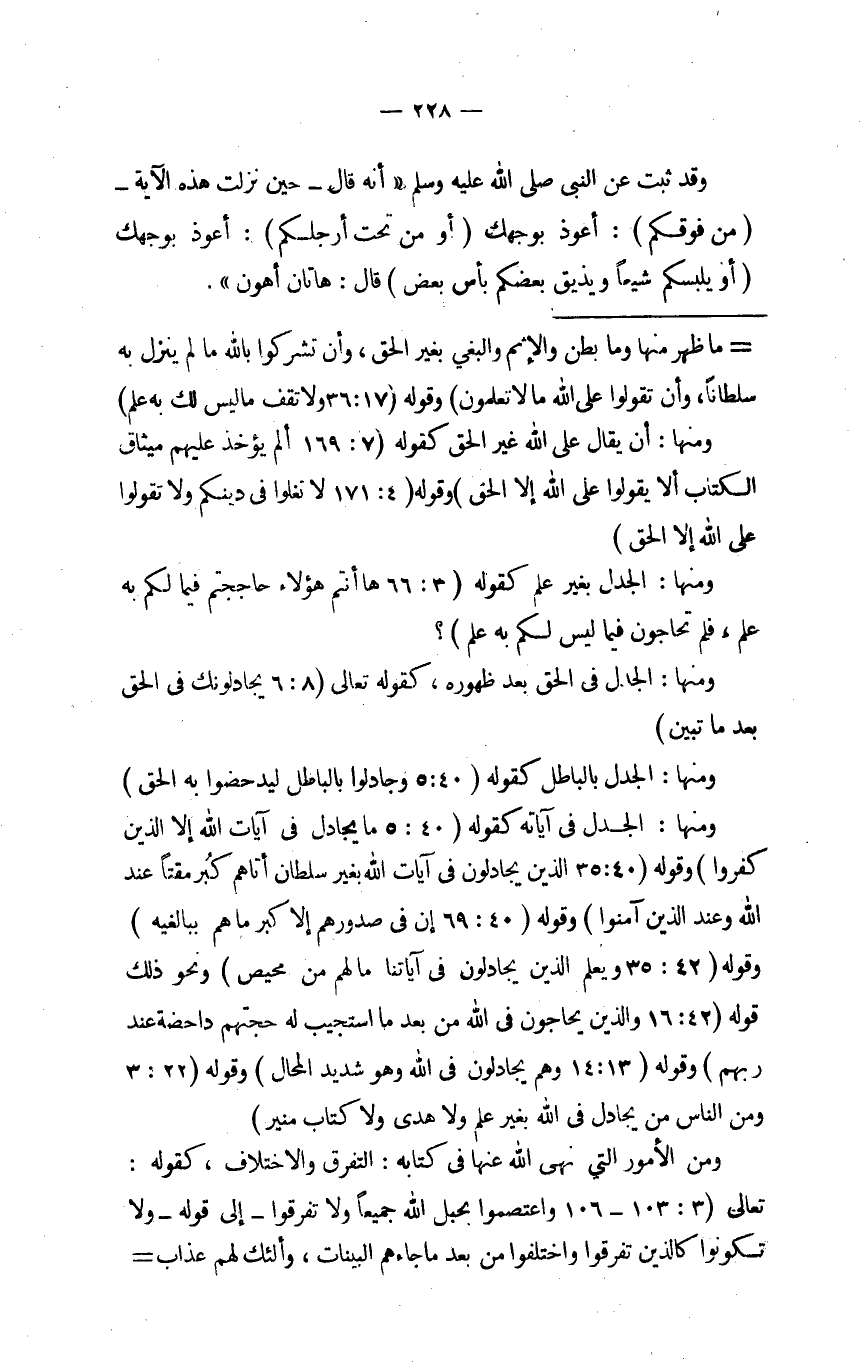 — ٢٢٨ —
وقد ثبت عن النبى صلى الله عليه وسلم « أنه قال ـ حين نزلت هذه الآية ـ
( من فوقكم ) : أعوذ بوجهك ( أو من تحت أرجلكم ) : أعوذ بوجهك
( أو يلبسكم شيعاً ويذيق بعضكم بأس بعض ) قال : هاتان أهون » .
= ما ظهر منها وما بطن والإثم والبغي بغير الحق ، وأن تشركوا بالله ما لم ينزل به
سلطاناً ، وأن تقولوا على الله ما لا تعلمون) وقوله (٣٦:١٧ولا تقف ماليس لك به علم)
ومنها : أن يقال على الله غير الحق كقوله (٧ : ١٦٩ ألم يؤخذ عليهم ميثاق
الكتاب ألا يقولوا على الله إلا الحق )وقوله( ٤ : ١٧١ لا تغلوا فى دينكم ولا تقولوا
على الله إلا الحق )
ومنها : الجدل بغير علم كقوله ( ٣ : ٦٦ ها أنتم هؤلاء حاججتم فيما لكم به
علم ، فلم تحاجون فيما ليس لكم به علم ) ؟
ومنها : الجدل فى الحق بعد ظهوره ، كقوله تعالى (٨ : ٦ يجادلونك فى الحق
بعد ما تبين )
ومنها : الجدل بالباطل كقوله ( ٤٠ :٥ وجادلوا بالباطل ليدحضوا به الحق )
ومنها : الجدل فى آياته كقوله ( ٤٠ : ٥ ما يجادل فى آيات الله إلا الذين
كفروا ) وقوله (٤٠ :٣٥ الذين يجادلون فى آيات الله بغير سلطان أتاهم كبُر مقتاً عند
الله وعند الذين آمنوا ) وقوله ( ٤٠ : ٦٩ إن فى صدورهم إلا كبر ماهم ببالغيه )
وقوله ( ٤٢ : ٣٥ ويعلم الذين يجادلون فى آياتنا مالهم من محيص ) ونحو ذلك
قوله (٤٢ :١٦ والذين يحاجون فى الله من بعد ما استجيب له حجتهم داحضة عند
ربهم ) وقوله ( ١٣ :١٤ وهم يجادلون فى الله وهو شديد المحال ) وقوله (٢٢ : ٣
ومن الناس من يجادل فى الله بغير علم ولا هدى ولا كتاب منير )
ومن الأمور التي نهى الله عنها فى كتابه : التفرق والاختلاف ، كقوله :
تعالى (٣ : ١٠٣ ـ ١٠٦ واعتصموا بحبل الله جميعاً ولا تفرقوا ـ إلى قوله ـ ولا
تكونوا كالذين تفرقوا واختلفوا من بعد ماجاءهم البينات ، وألئك لهم عذاب =